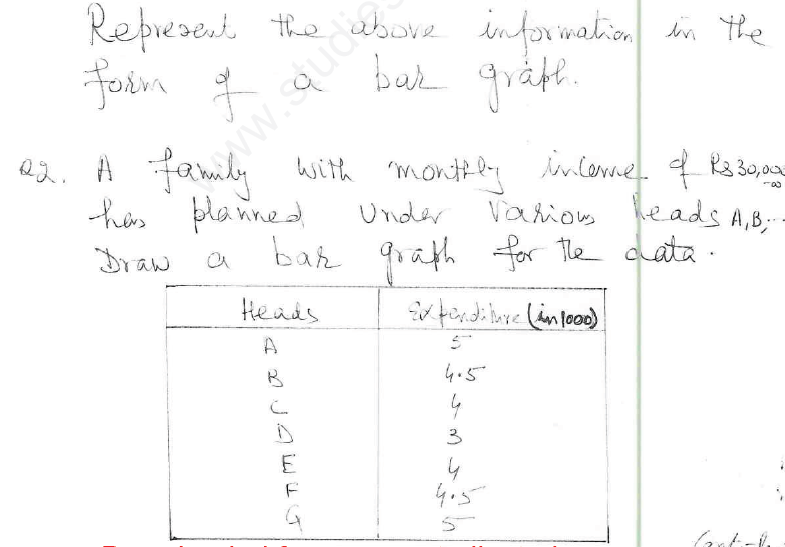 Represent the above information in the
form of a bar graph.
Q2. A family with monthly income of Rs 30,000
has planned under various heads A,B,...
Draw a bar graph for the data.
Heads Expenditure (in 1000)
A 5
B 4.5
C 4
D 3
E 4
F 4.5
G 5